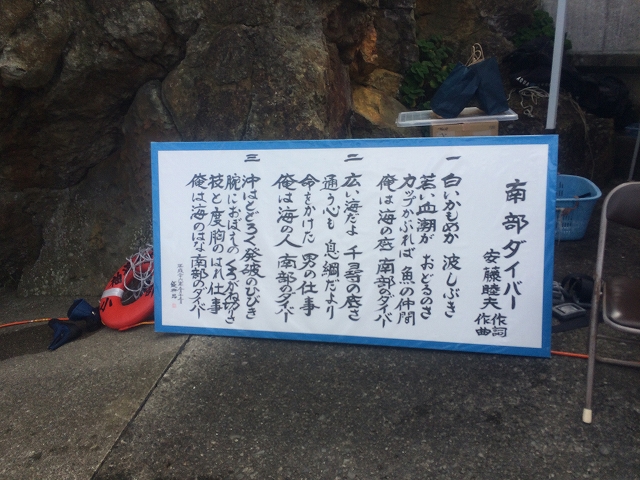 南部ダイバー
安藤睦夫 作詞
作曲
一 白いかもめか 波しぶき
若い血潮が おどるのさ
カップかぶれば 魚の仲間
俺は海の底 南部のダイバー
二 広い海だよ 千尋の底さ
通う心も 息綱だより
命をかけた 男の仕事
俺は海の人 南部のダイバー
三 沖はどろく 発破のひびき
腕におぼえの
技と度胸の はれ仕事
俺は海のはな 南部のダイバー